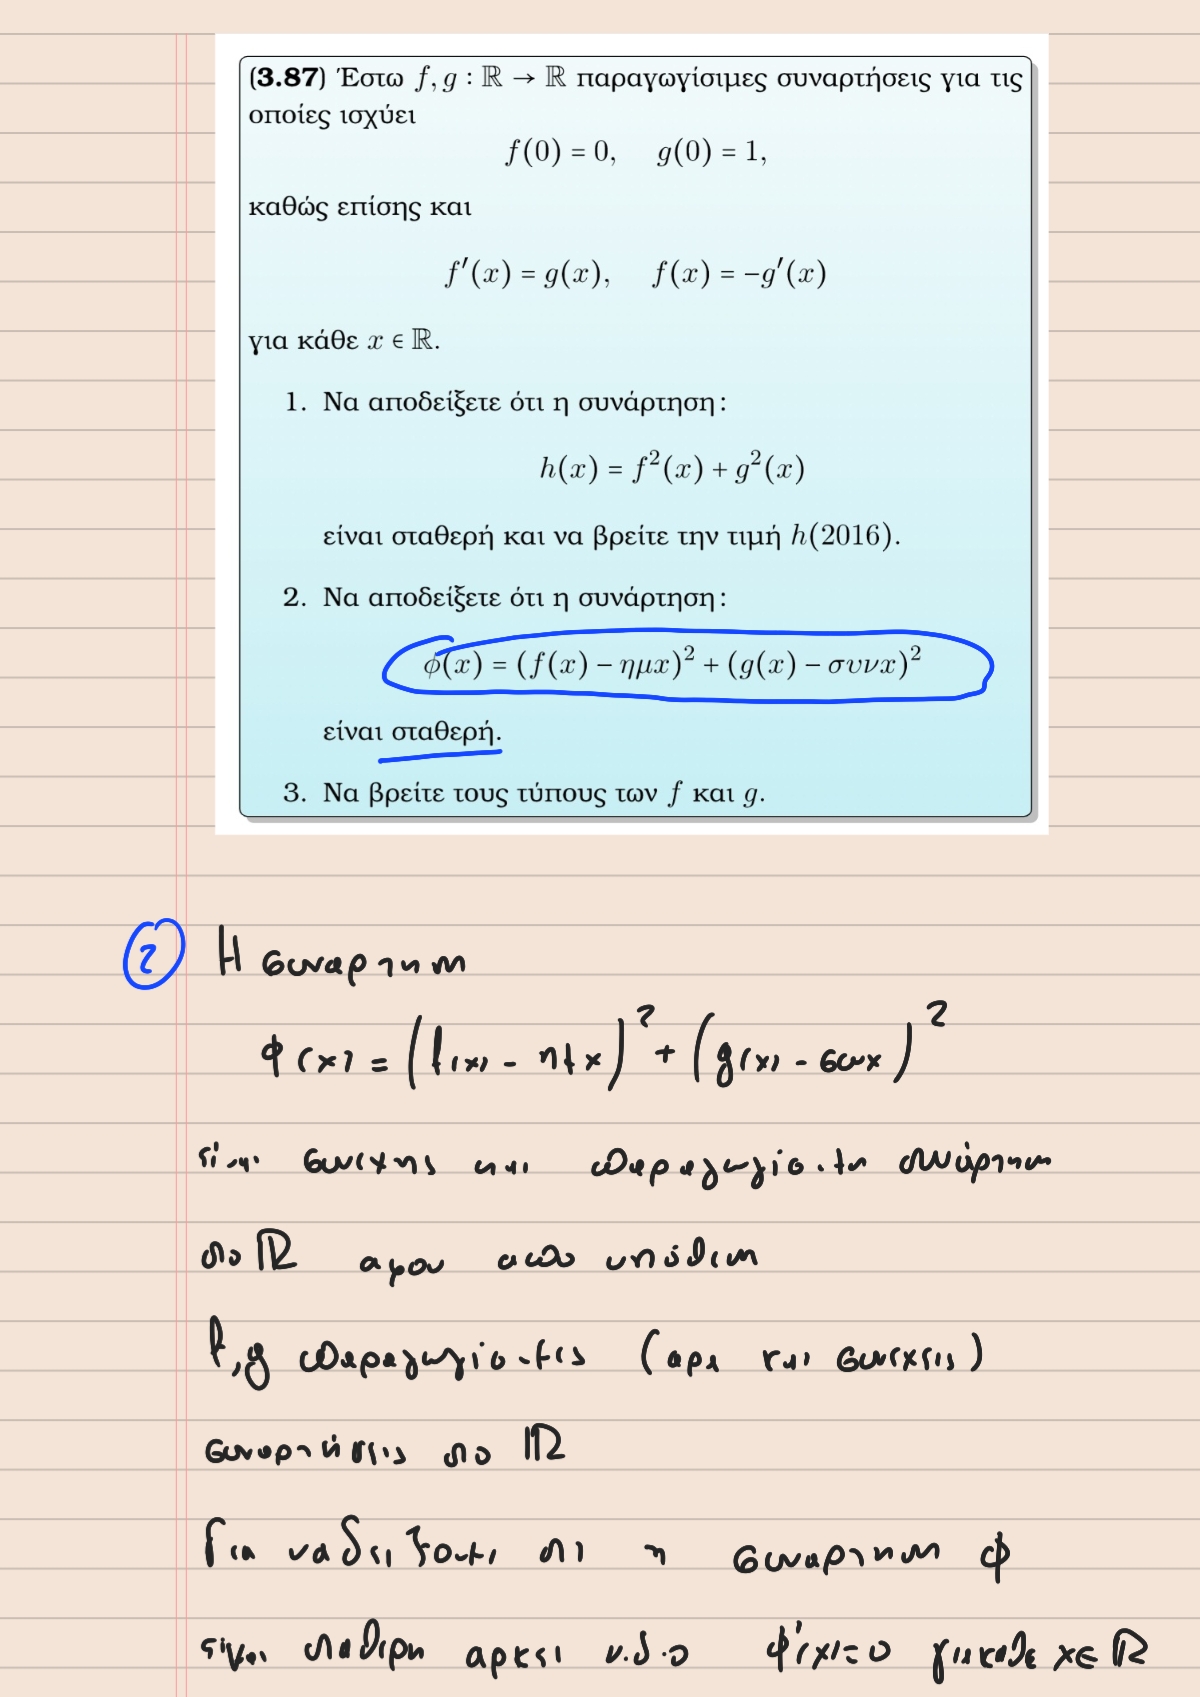 (3.87) Έστω f, g : ℝ → ℝ παραγωγίσιμες συναρτήσεις για τις
οποίες ισχύει
f(0) = 0, g(0) = 1,
καθώς επίσης και
f′(x) = g(x), f(x) = −g′(x)
για κάθε x ∈ ℝ.
1. Να αποδείξετε ότι η συνάρτηση:
h(x) = f²(x) + g²(x)
είναι σταθερή και να βρείτε την τιμή h(2016).
2. Να αποδείξετε ότι η συνάρτηση:
ϕ(x) = (f(x) − ημx)² + (g(x) − συνx)²
είναι σταθερή.
3. Να βρείτε τους τύπους των f και g.
② Η συναρτηση
φ(x) = (f(x) - ημx)² + (g(x) - συνx)²
είναι συνεχης και παραγωγίσιμη συνάρτηση
στο ℝ αφου απο υπόθεση
f, g παραγωγίσιμες (αρα και συνεχεις)
συναρτήσεις στο ℝ
Για να δειξουμε οτι η συναρτηση φ
είναι σταθερη αρκει ν.δ.ο φ'(x)=0 για καθε x∈ℝ